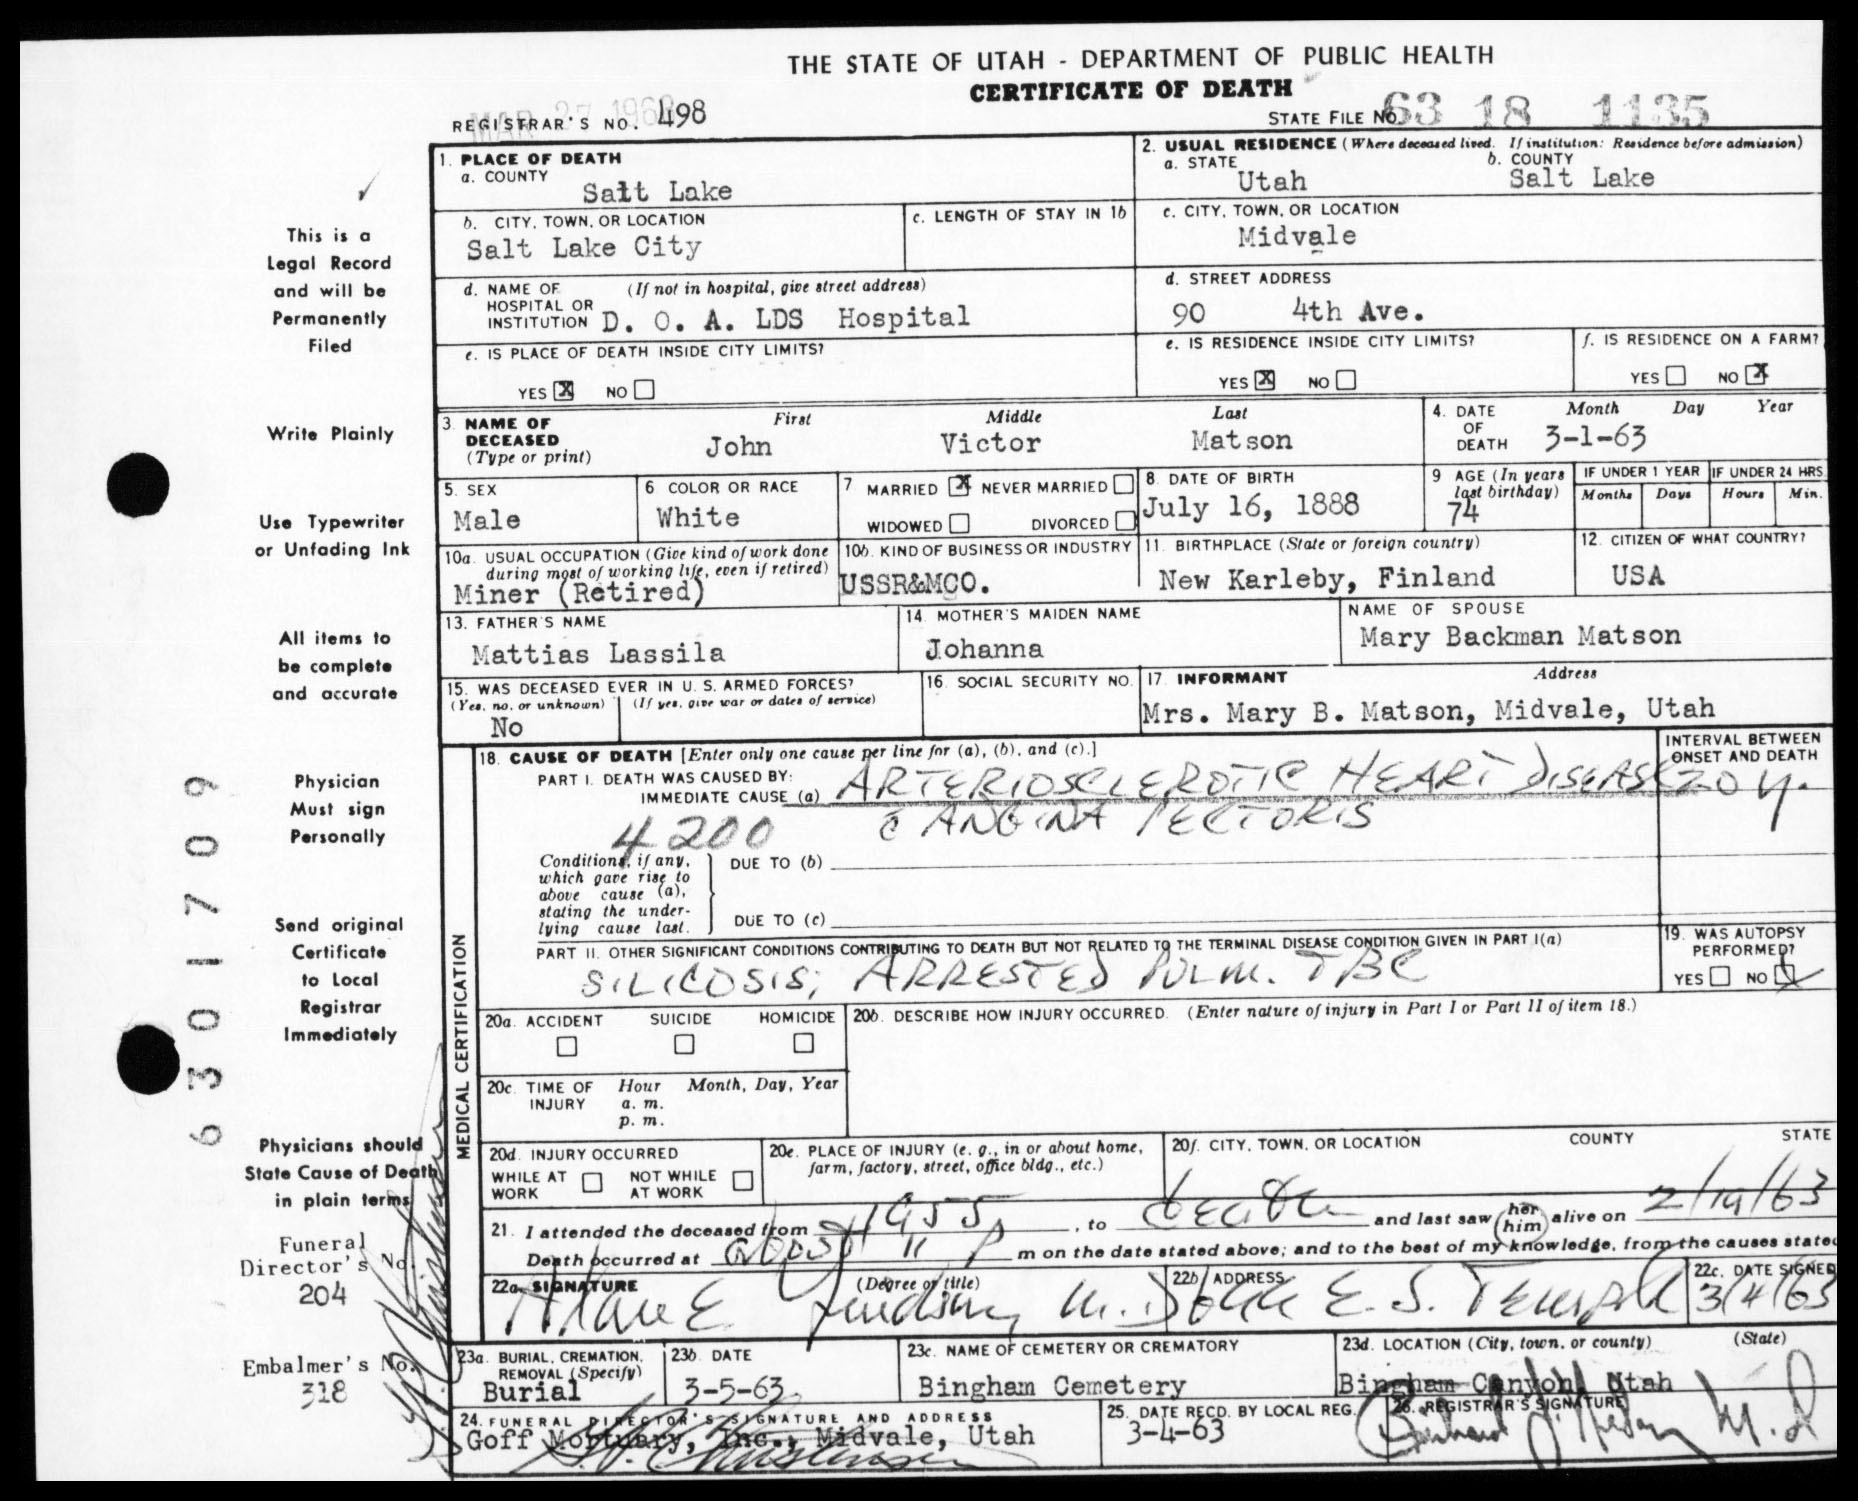 THE STATE OF UTAH - DEPARTMENT OF PUBLIC HEALTH
CERTIFICATE OF DEATH
MAR 27 1963
REGISTRAR'S NO. 498
STATE FILE NO. 63 18 1135
1. PLACE OF DEATH
a. COUNTY
Salt Lake
2. USUAL RESIDENCE (Where deceased lived. If institution: Residence before admission)
a. STATE
Utah
b. COUNTY
Salt Lake
b. CITY, TOWN, OR LOCATION
Salt Lake City
c. LENGTH OF STAY IN 1b
c. CITY, TOWN, OR LOCATION
Midvale
d. NAME OF (If not in hospital, give street address)
HOSPITAL OR
INSTITUTION D. O. A. LDS Hospital
d. STREET ADDRESS
90 4th Ave.
e. IS PLACE OF DEATH INSIDE CITY LIMITS?
YES X NO
e. IS RESIDENCE INSIDE CITY LIMITS?
YES X NO
f. IS RESIDENCE ON A FARM?
YES NO X
3. NAME OF
DECEASED
(Type or print)
First Middle Last
John Victor Matson
4. DATE
OF
DEATH
Month Day Year
3-1-63
5. SEX
Male
6 COLOR OR RACE
White
7 MARRIED X NEVER MARRIED
WIDOWED DIVORCED
8. DATE OF BIRTH
July 16, 1888
9 AGE (In years
last birthday)
74
IF UNDER 1 YEAR
Months Days
IF UNDER 24 HRS
Hours Min.
10a. USUAL OCCUPATION (Give kind of work done
during most of working life, even if retired)
Miner (Retired)
10b. KIND OF BUSINESS OR INDUSTRY
USSR&MCO.
11. BIRTHPLACE (State or foreign country)
New Karleby, Finland
12. CITIZEN OF WHAT COUNTRY?
USA
13. FATHER'S NAME
Mattias Lassila
14. MOTHER'S MAIDEN NAME
Johanna
NAME OF SPOUSE
Mary Backman Matson
15. WAS DECEASED EVER IN U. S. ARMED FORCES?
(Yes, no, or unknown) (If yes, give war or dates of service)
No
16. SOCIAL SECURITY NO.
17. INFORMANT Address
Mrs. Mary B. Matson, Midvale, Utah
MEDICAL CERTIFICATION
18. CAUSE OF DEATH [Enter only one cause per line for (a), (b), and (c).]
INTERVAL BETWEEN
ONSET AND DEATH
PART I. DEATH WAS CAUSED BY:
IMMEDIATE CAUSE (a) ARTERIOSCLEROTIC HEART DISEASE 20 y.
4200 c̄ ANGINA PECTORIS
Conditions, if any,
which gave rise to
above cause (a),
stating the under-
lying cause last.
DUE TO (b)
DUE TO (c)
PART II. OTHER SIGNIFICANT CONDITIONS CONTRIBUTING TO DEATH BUT NOT RELATED TO THE TERMINAL DISEASE CONDITION GIVEN IN PART I(a)
SILICOSIS; ARRESTED PULM. TBC
19. WAS AUTOPSY
PERFORMED?
YES NO
20a. ACCIDENT SUICIDE HOMICIDE
20b. DESCRIBE HOW INJURY OCCURRED. (Enter nature of injury in Part I or Part II of item 18.)
20c. TIME OF
INJURY
Hour Month, Day, Year
a. m.
p. m.
20d. INJURY OCCURRED
WHILE AT
WORK
NOT WHILE
AT WORK
20e. PLACE OF INJURY (e. g., in or about home,
farm, factory, street, office bldg., etc.)
20f. CITY, TOWN, OR LOCATION COUNTY STATE
21. I attended the deceased from 1955, to death and last saw (her him) alive on 2/19/63
Death occurred at about 11 p m on the date stated above; and to the best of my knowledge, from the causes stated
22a. SIGNATURE (Degree or title)
M. D.
22b. ADDRESS
E. S. Temple
22c. DATE SIGNED
3/4/63
23a. BURIAL, CREMATION,
REMOVAL (Specify)
Burial
23b. DATE
3-5-63
23c. NAME OF CEMETERY OR CREMATORY
Bingham Cemetery
23d. LOCATION (City, town, or county) (State)
Bingham Canyon, Utah
24. FUNERAL DIRECTOR'S SIGNATURE AND ADDRESS
Goff Mortuary, Inc., Midvale, Utah
25. DATE RECD. BY LOCAL REG.
3-4-63
26. REGISTRAR'S SIGNATURE
M. D
This is a
Legal Record
and will be
Permanently
Filed
Write Plainly
Use Typewriter
or Unfading Ink
All items to
be complete
and accurate
Physician
Must sign
Personally
Send original
Certificate
to Local
Registrar
Immediately
Physicians should
State Cause of Death
in plain terms
Funeral
Director's No.
204
Embalmer's No.
318
6301709